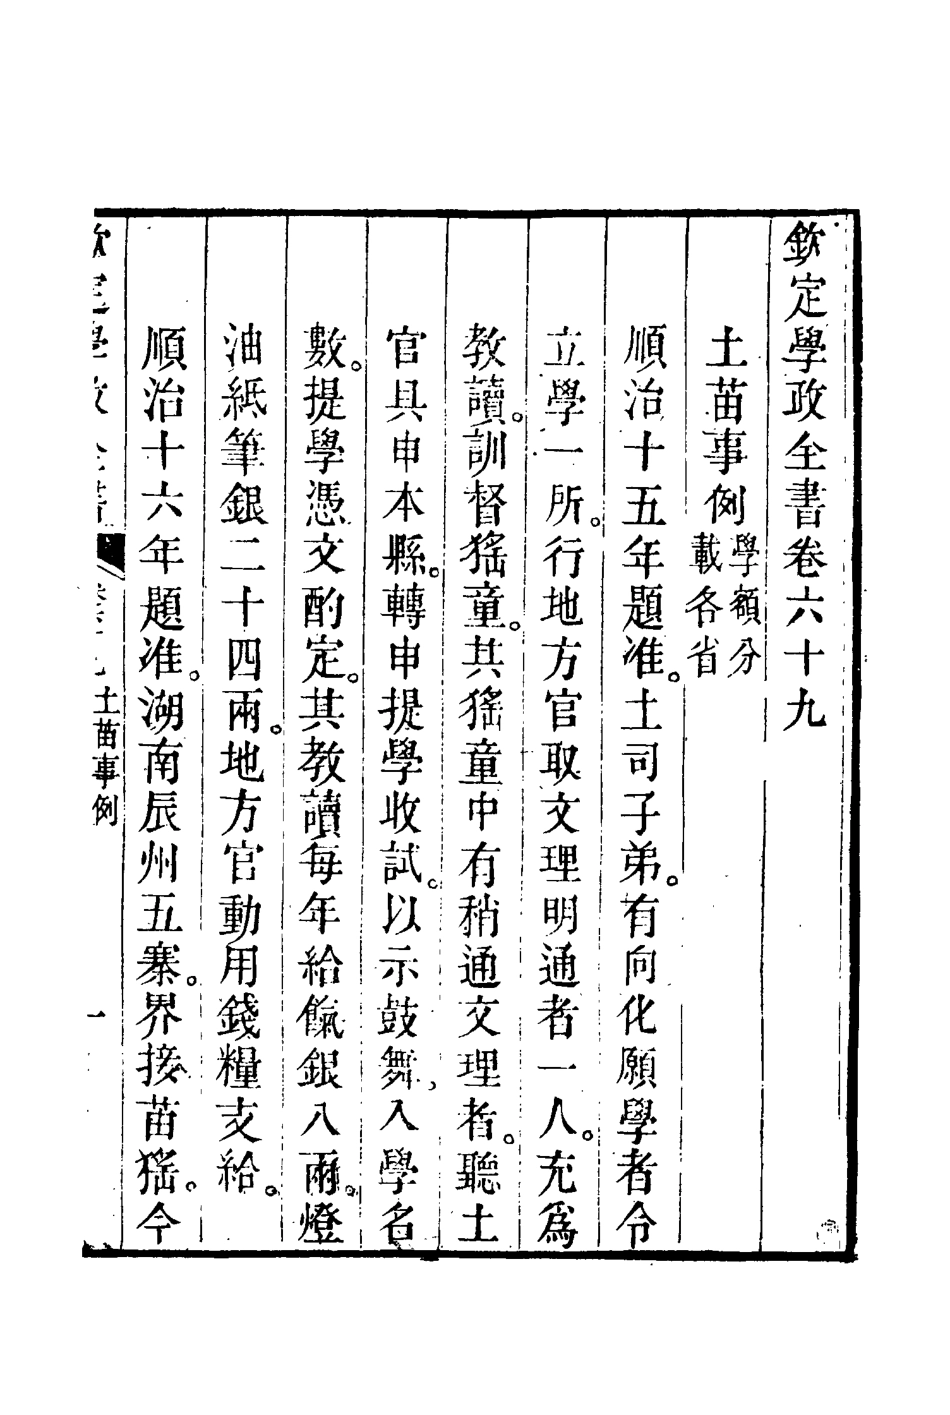 欽定學政全書卷六十九
土苗事例 學額分載各省
順治十五年題准。土司子弟。有向化願學者令
立學一所。行地方官取文理明通者一人。充爲
教讀。訓督猺童。其猺童中有稍通文理者。聽土
官具申本縣。轉申提學收試。以示鼓舞、入學名
數。提學憑文酌定。其教讀每年給餼銀八兩。燈
油紙筆銀二十四兩。地方官動用錢糧支給。
順治十六年題准。湖南辰州五寨。界接苗猺。今
欽定學政全書 卷六十九 土苗事例 一